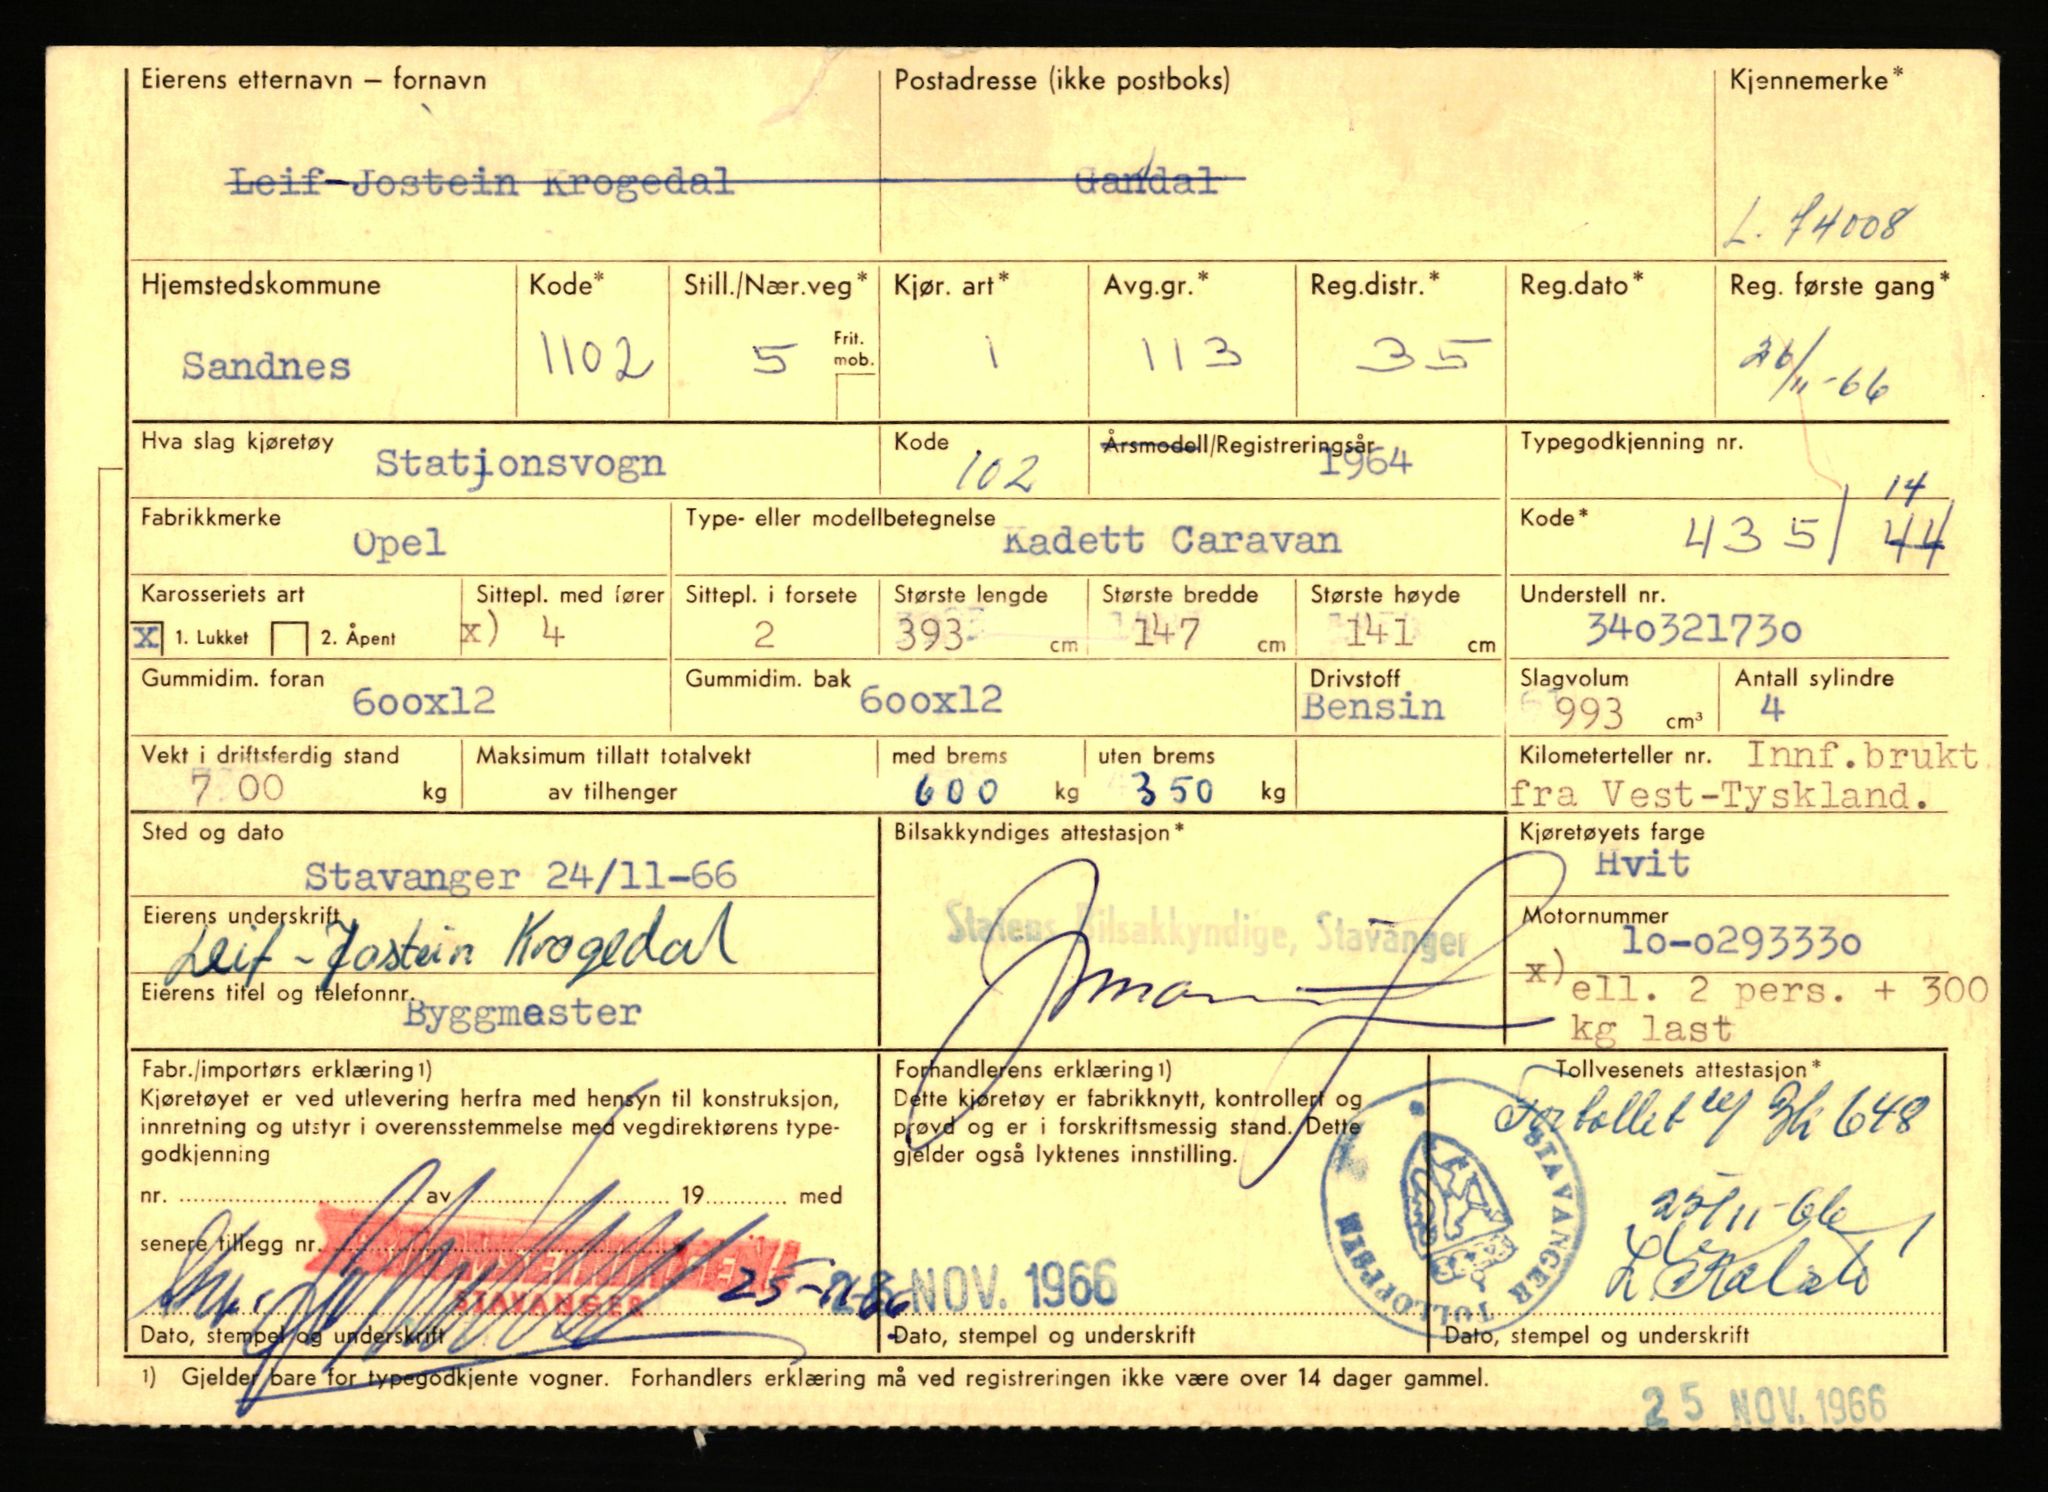 Eierens etternavn — fornavn
Postadresse (ikke postboks)
Kjennemerke*
Leif-Jostein Krogedal
Gandal
L. 74008
Hjemstedskommune
Kode*
Still./Nær.veg*
Kjør. art*
Avg.gr.*
Reg.distr.*
Reg.dato*
Reg. første gang*
Sandnes
1102
5
Frit. mob.
1
113
35
26/11-66
Hva slag kjøretøy
Stasjonsvogn
Kode
102
Årsmodell/Registreringsår
1964
Typegodkjenning nr.
Fabrikkmerke
Opel
Type- eller modellbetegnelse
Kadett Caravan
Kode*
435/ 44
14
Karosseriets art
Sittepl. med fører
Sittepl. i forsete
Største lengde
Største bredde
Største høyde
Understell nr.
x 1. Lukket 2. Åpent
x) 4
2
393 cm
147 cm
141 cm
340321730
Gummidim. foran
600x12
Gummidim. bak
600x12
Drivstoff
Bensin
Slagvolum
993 cm³
Antall sylindre
4
Vekt i driftsferdig stand
700 kg
Maksimum tillatt totalvekt
av tilhenger
med brems
600 kg
uten brems
350 kg
Kilometerteller nr. Innf.brukt
fra Vest-Tyskland.
Sted og dato
Stavanger 24/11-66
Bilsakkyndiges attestasjon*
Statens Bilsakkyndige, Stavanger
Kjøretøyets farge
Hvit
Eierens underskrift
Leif-Jostein Krogedal
Motornummer
10-0293330
Eierens titel og telefonnr.
Byggmester
x) ell. 2 pers. + 300
kg last
Fabr./importørs erklæring1)
Kjøretøyet er ved utlevering herfra med hensyn til konstruksjon,
innretning og utstyr i overensstemmelse med vegdirektørens type-
godkjenning
nr. av 19 med
senere tillegg nr.
STAVANGER
25-11-66
Dato, stempel og underskrift
Forhandlerens erklæring1)
Dette kjøretøy er fabrikknytt, kontrollert og
prøvd og er i forskriftsmessig stand. Dette
gjelder også lyktenes innstilling.
NOV. 1966
Dato, stempel og underskrift
Tollvesenets attestasjon*
Fortollet
648
25/11-66
STAVANGER TOLLOPPSYN
Dato, stempel og underskrift
1) Gjelder bare for typegodkjente vogner. Forhandlers erklæring må ved registreringen ikke være over 14 dager gammel.
25 NOV. 1966